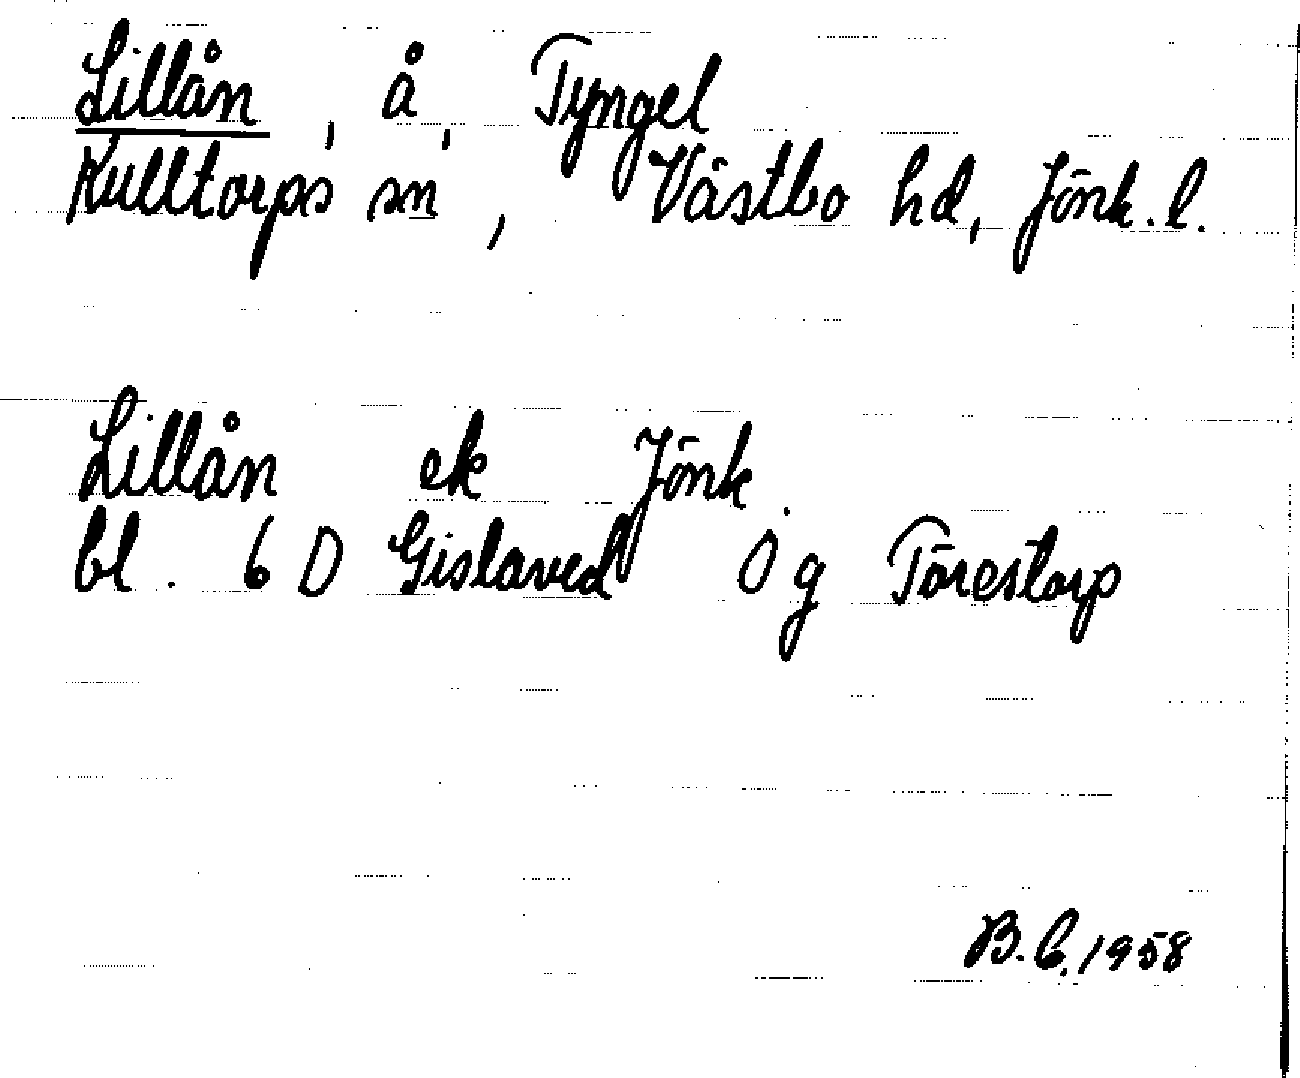 Lillån, å, Tyngel
Kulltorps sn, Västbo hd, Jönk.l.
Lillån ek Jönk.
bl. 6 D Gislaved 0 g Törestorp
B.C. 1958